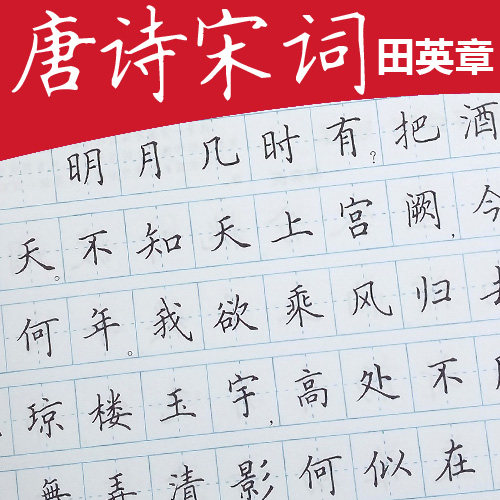 唐诗宋词 田英章
明月几时有?把酒
天。不知天上宫阙,今
何年。我欲乘风归
琼楼玉宇,高处不
舞弄清影何似在